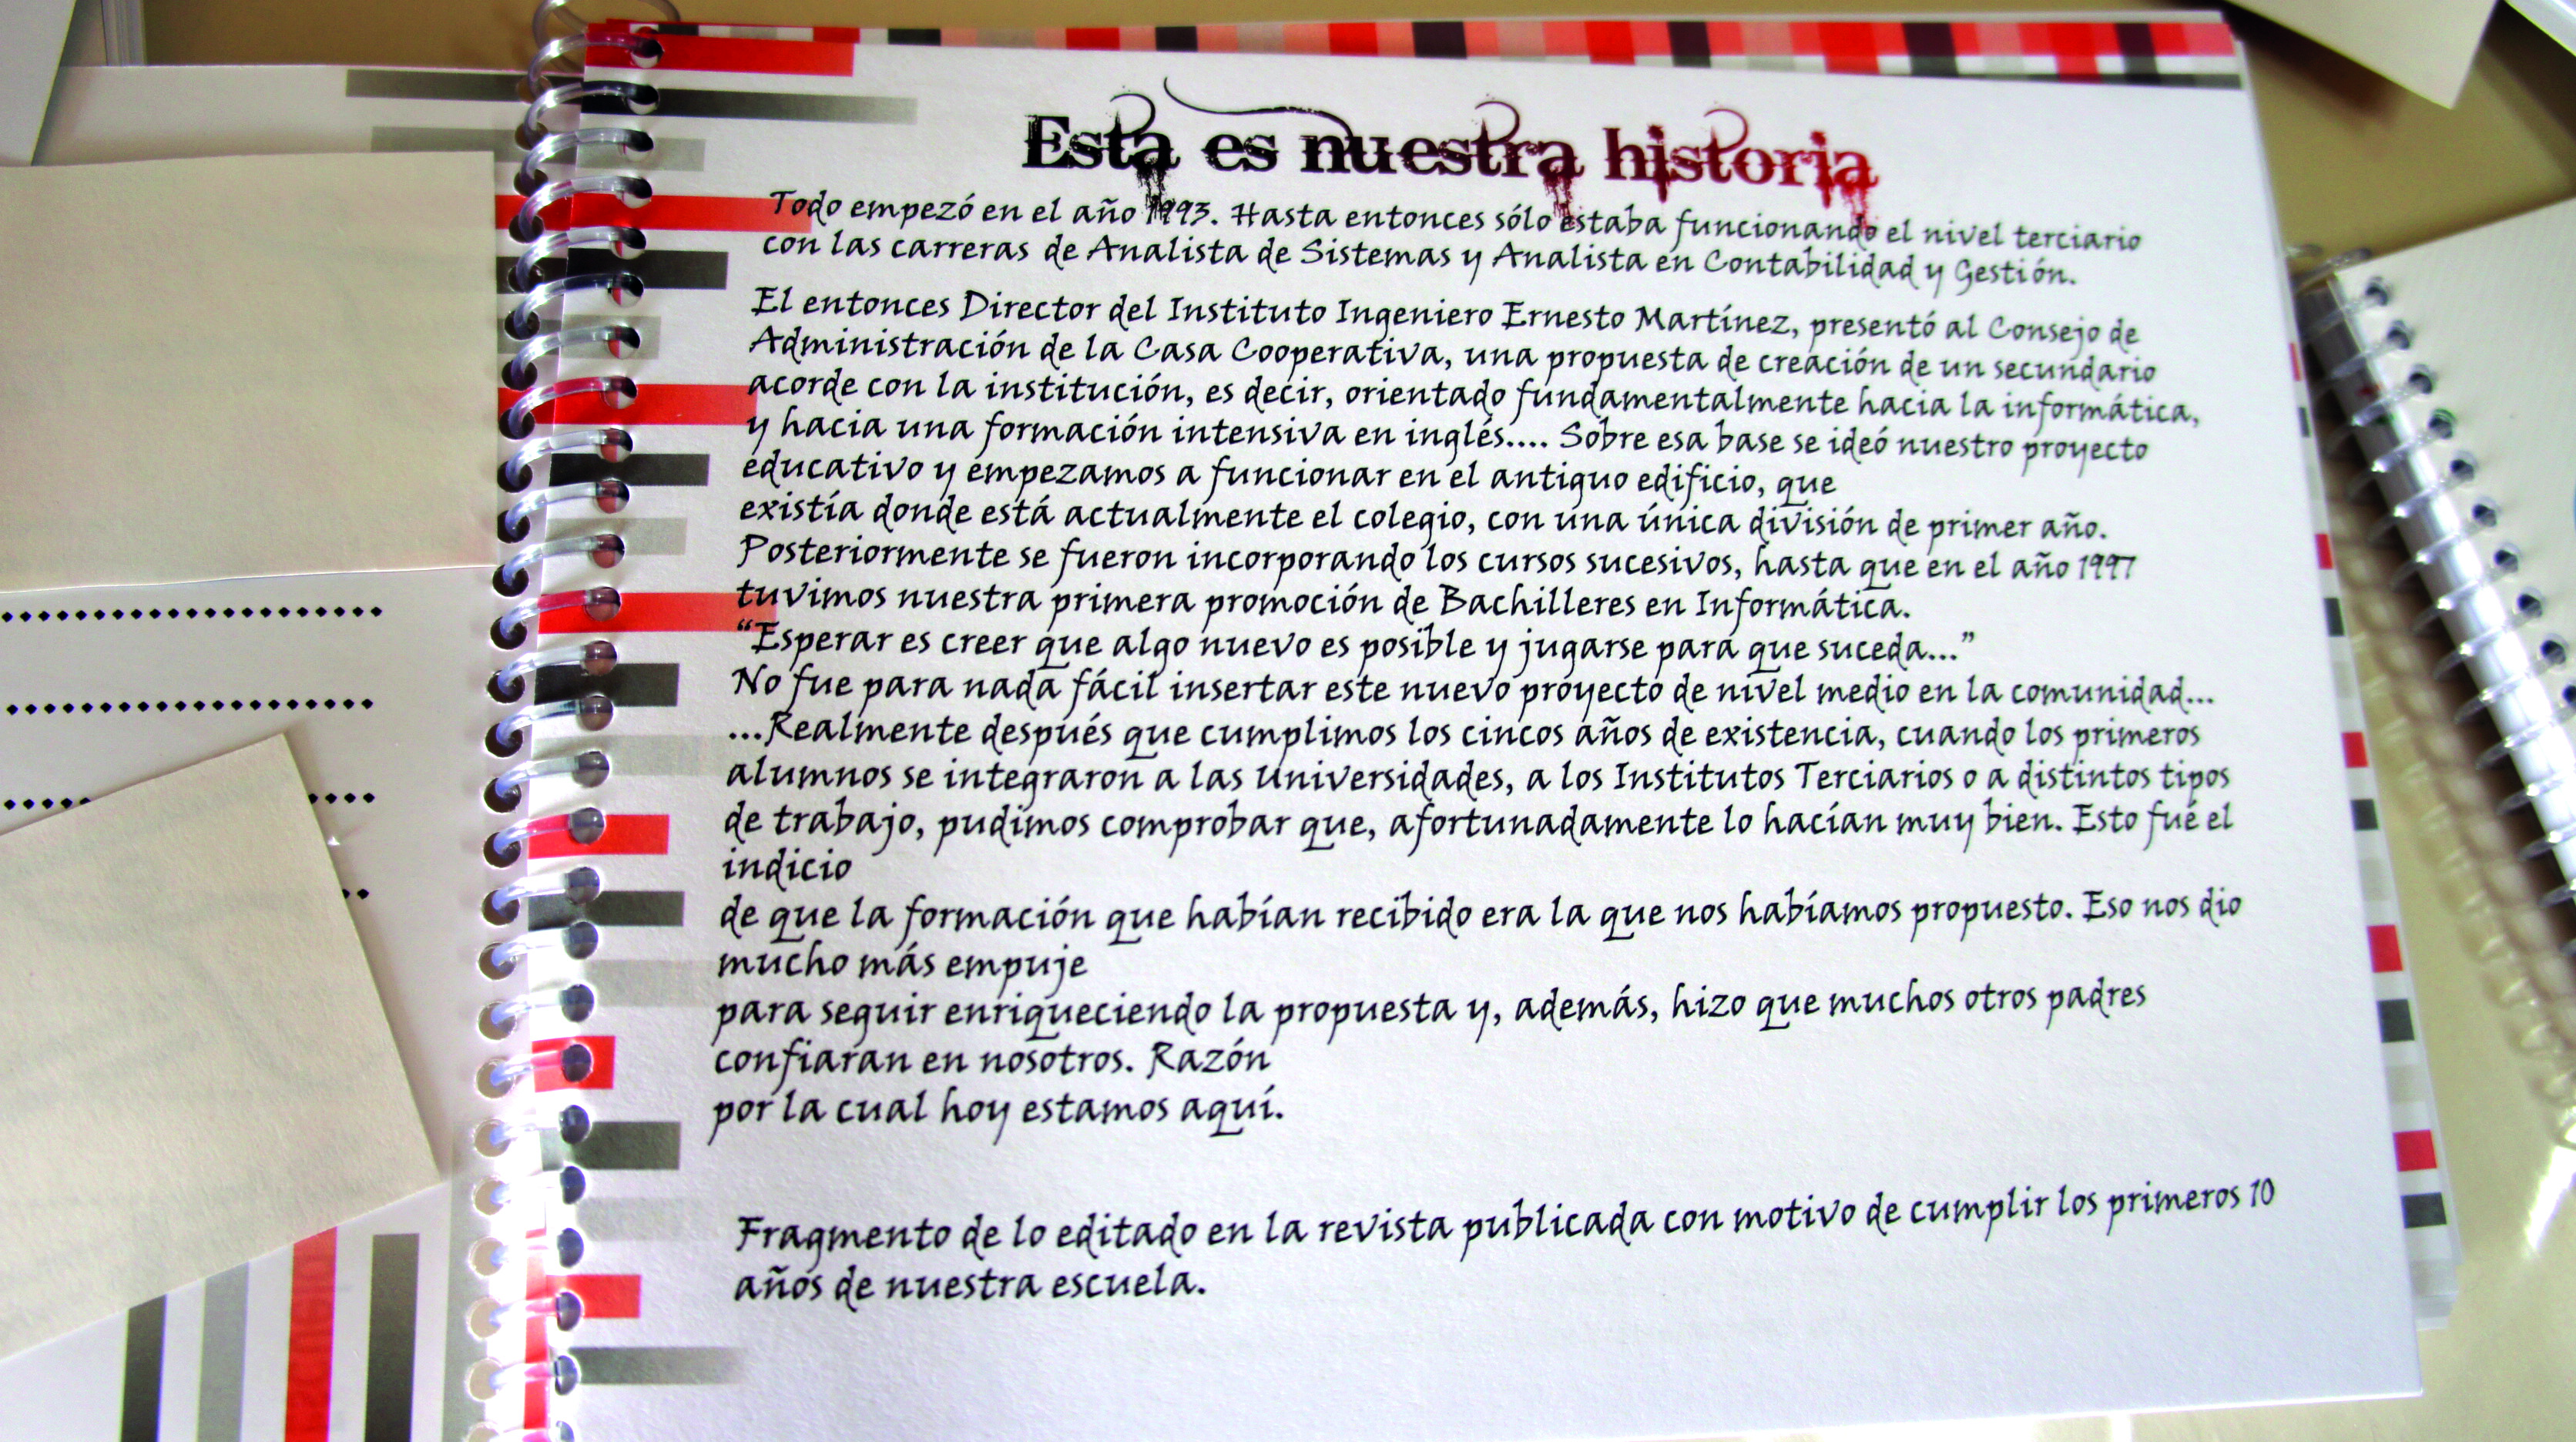 Esta es nuestra historia
Todo empezó en el año 1993. Hasta entonces sólo estaba funcionando el nivel terciario
con las carreras de Analista de Sistemas y Analista en Contabilidad y Gestión.
El entonces Director del Instituto Ingeniero Ernesto Martínez, presentó al Consejo de
Administración de la Casa Cooperativa, una propuesta de creación de un secundario
acorde con la institución, es decir, orientado fundamentalmente hacia la informática,
y hacia una formación intensiva en inglés.... Sobre esa base se ideó nuestro proyecto
educativo y empezamos a funcionar en el antiguo edificio, que
existía donde está actualmente el colegio, con una única división de primer año.
Posteriormente se fueron incorporando los cursos sucesivos, hasta que en el año 1997
tuvimos nuestra primera promoción de Bachilleres en Informática.
“Esperar es creer que algo nuevo es posible y jugarse para que suceda...”
No fue para nada fácil insertar este nuevo proyecto de nivel medio en la comunidad...
...Realmente después que cumplimos los cincos años de existencia, cuando los primeros
alumnos se integraron a las Universidades, a los Institutos Terciarios o a distintos tipos
de trabajo, pudimos comprobar que, afortunadamente lo hacían muy bien. Esto fué el
indicio
de que la formación que habían recibido era la que nos habíamos propuesto. Eso nos dio
mucho más empuje
para seguir enriqueciendo la propuesta y, además, hizo que muchos otros padres
confiaran en nosotros. Razón
por la cual hoy estamos aquí.
Fragmento de lo editado en la revista publicada con motivo de cumplir los primeros 10
años de nuestra escuela.